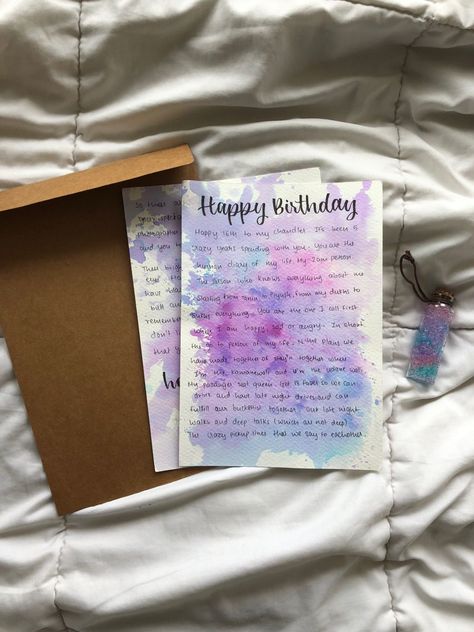 Happy Birthday
Happy 16th to my chandler. It's been 5
crazy years spending with you. You are the
human diary of my life. My 2am person
The person who knows everything about me
Starting from to from my to
everything. You are the one I call first
when I am happy, sad or angry. In short
the go to person of my life. All the plans we
have made together of together when
I'm and
My passenger seat queen. Get 18 faster so we can
drive and have late night drives and can
fulfill our bucketlist together. Our late night
walks and deep talks (which are not deep)
The crazy pickup lines that we say to eachother.
So there are
photographer
and you
Their brigh
eyes
have
remember
don't
that y
he